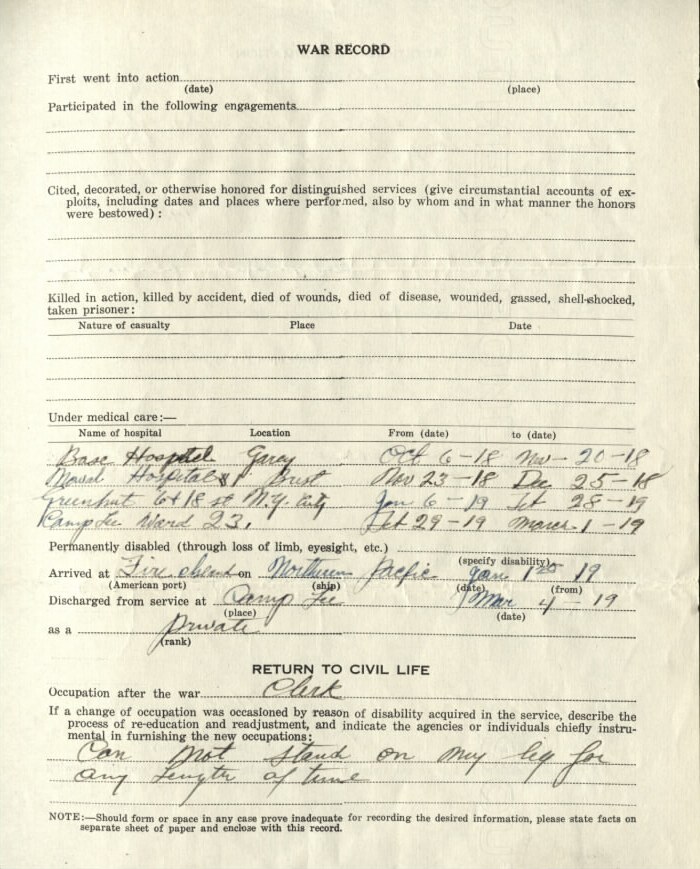 WAR RECORD
First went into action
(date) (place)
Participated in the following engagements
Cited, decorated, or otherwise honored for distinguished services (give circumstantial accounts of ex-
ploits, including dates and places where performed, also by whom and in what manner the honors
were bestowed) :
Killed in action, killed by accident, died of wounds, died of disease, wounded, gassed, shell-shocked,
taken prisoner:
Nature of casualty Place Date
Under medical care:—
Name of hospital Location From (date) to (date)
Base Hospital Oct 6-18 Nov- 20-18
Hospital #1 Brest Nov 23-18 Dec 25-18
Greenhut 6th 18 st N.Y. City Jan 6-19 28-19
Camp Lee Ward 23, 29-19 March 1-19
Permanently disabled (through loss of limb, eyesight, etc.)
(specify disability)
Arrived at on Northern Pacific Jan 1 19
(American port) (ship) (date) (from)
Discharged from service at Camp Lee Mar 4-19
(place) (date)
as a Private
(rank)
RETURN TO CIVIL LIFE
Occupation after the war Clerk
If a change of occupation was occasioned by reason of disability acquired in the service, describe the
process of re-education and readjustment, and indicate the agencies or individuals chiefly instru-
mental in furnishing the new occupations:
Can not stand on my leg for
any length of time
NOTE:—Should form or space in any case prove inadequate for recording the desired information, please state facts on
separate sheet of paper and enclose with this record.